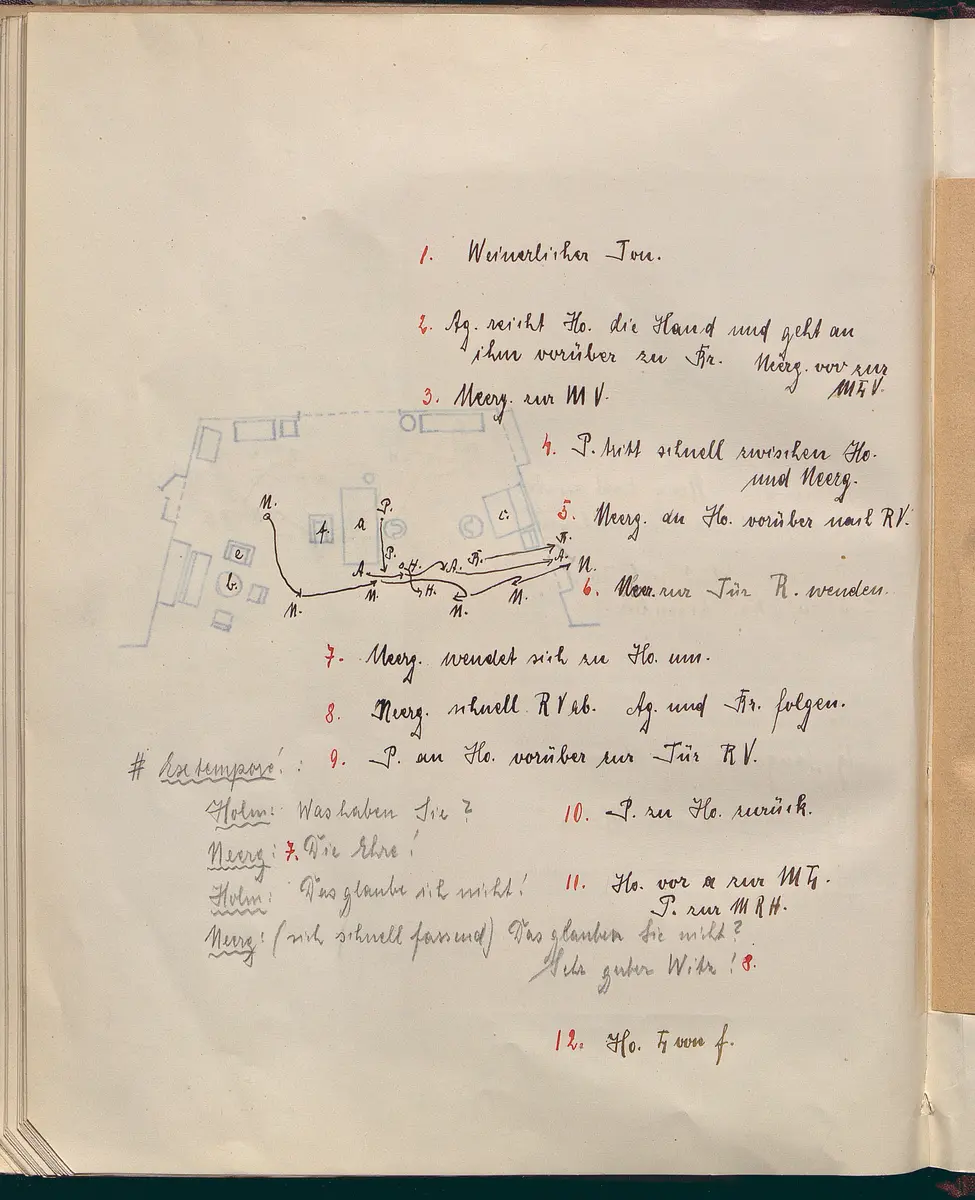 1. Weinerlicher Ton.
2. Ag. reicht Ho. die Hand und geht an
ihm vorüber zu Kr. Neerg. vor zur
MLV.
3. Neerg. zur MV.
4. P. tritt schnell zwischen Ho.
und Neerg.
N. f. a P. c.
5. Neerg. an Ho. vorüber nach RV.
e b. P. A. H. A. K. K. A. N.
N. N. H. N. N.
6. Neer. zur Tür R. wenden.
7. Neerg. wendet sich zu Ho. um.
8. Neerg. schnell RV ab. Ag. und Kr. folgen.
9. P. an Ho. vorüber zur Tür RV.
# Extemporé!:
Holm: Was haben Sie?
10. P. zu Ho. zurück.
Neerg: 7. Die Ehre!
Holm: Das glaube ich nicht!
11. Ho. vor a zur ML.
P. zur MRH.
Neerg: (sich schnell fassend) Das glauben Sie nicht?
Sehr guter Witz! 8.
12. Ho. L von f.